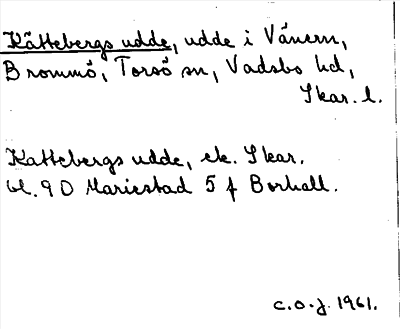 Kättebergs udde, udde i Vänern,
Brommö, Torsö sn, Vadsbo hd,
Skar. l.
Kattebergs udde, ek. Skar.
bl. 9 D Mariestad 5 f Borhall.
c.o.j. 1961.